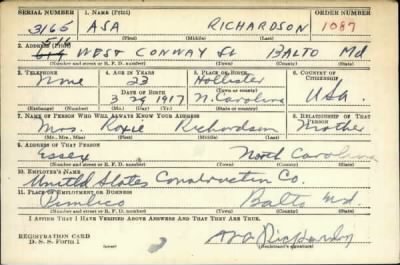 SERIAL NUMBER 1. NAME (Print) ORDER NUMBER
3165 ASA RICHARDSON 1087
(First) (Middle) (Last)
2. ADDRESS (Print)
511
619 WEST CONWAY St BALTO Md
(Number and street or R. F. D. number) (Town) (County) (State)
3. TELEPHONE 4. AGE IN YEARS 5. PLACE OF BIRTH 6. COUNTRY OF CITIZENSHIP
None 23 Hollister
DATE OF BIRTH (Town or county)
3 29 1917 N. Carolina USA
(Exchange) (Number) (Mo.) (Day) (Yr.) (State or country)
7. NAME OF PERSON WHO WILL ALWAYS KNOW YOUR ADDRESS 8. RELATIONSHIP OF THAT PERSON
Mrs. Roxie Richardson Mother
(Mr., Mrs., Miss) (First) (Middle) (Last)
9. ADDRESS OF THAT PERSON
Essex North Carolina
(Number and street or R. F. D. number) (Town) (County) (State)
10. EMPLOYER'S NAME
United States Construction Co.
11. PLACE OF EMPLOYMENT OR BUSINESS
Pimlico Balto Md.
(Number and street or R. F. D. number) (Town) (County) (State)
I AFFIRM THAT I HAVE VERIFIED ABOVE ANSWERS AND THAT THEY ARE TRUE.
REGISTRATION CARD
D. S. S. Form 1 Asa Richardson
(Registrant's signature)